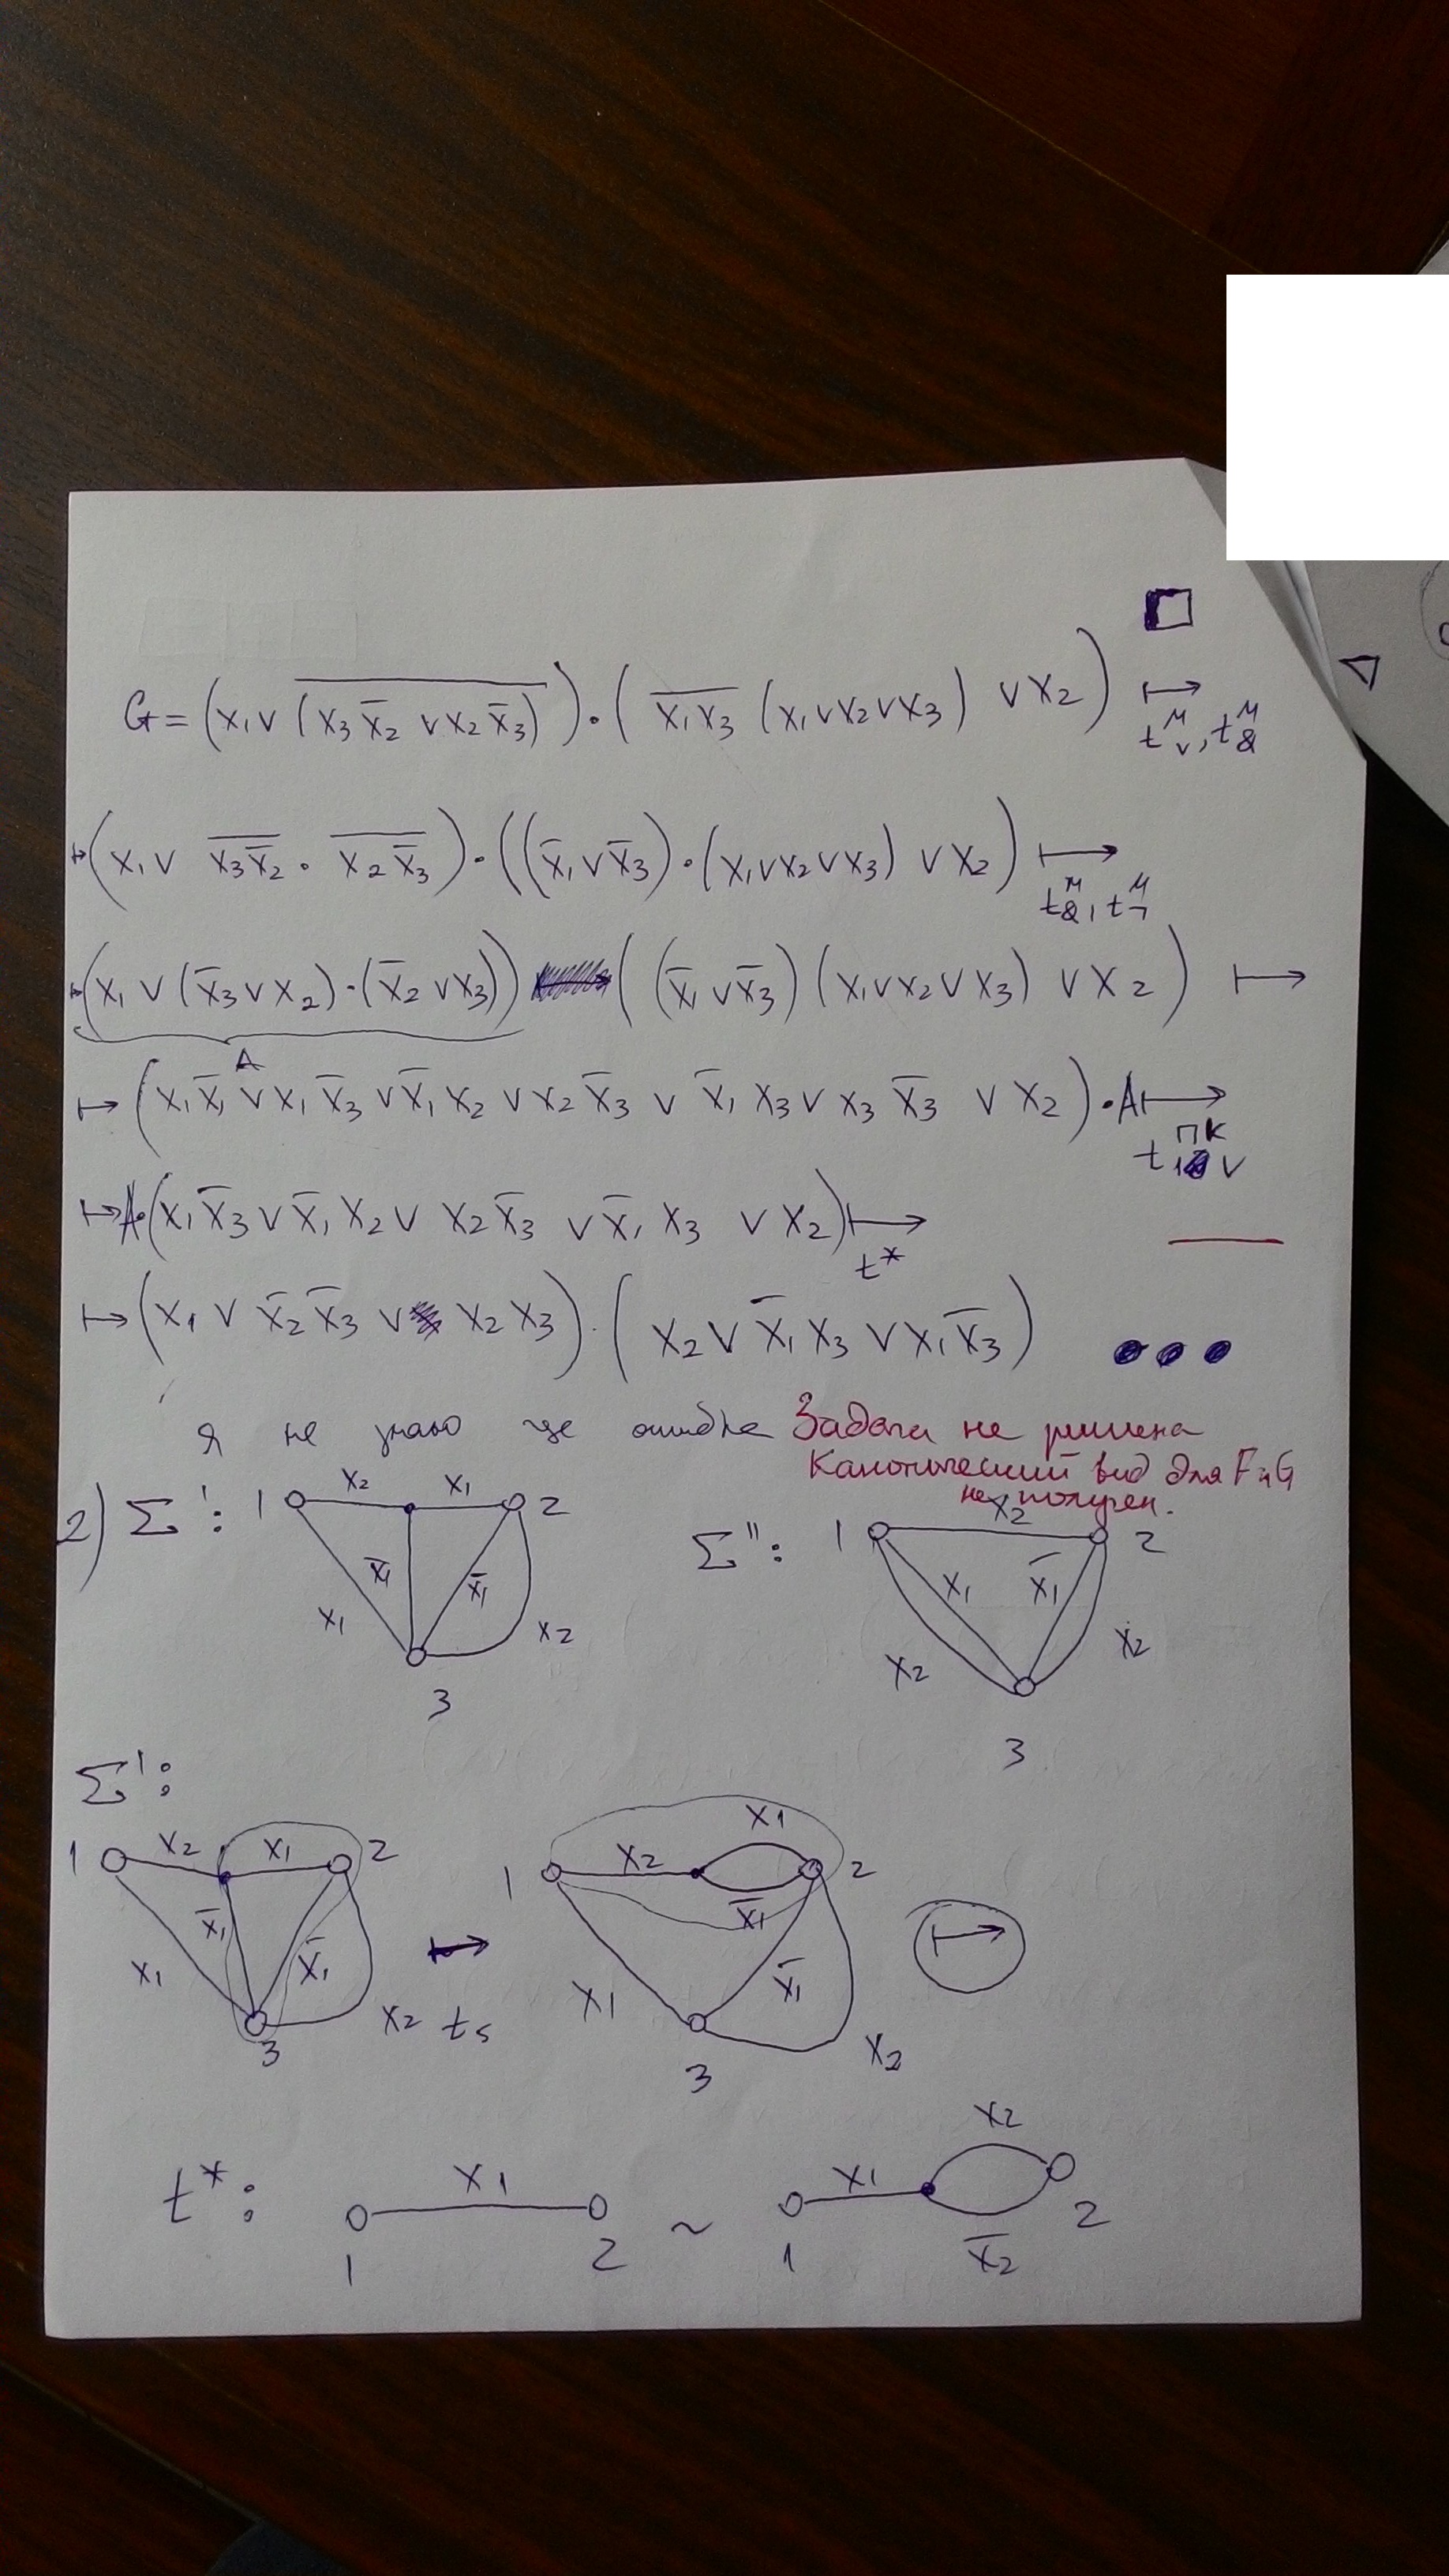 G = (x₁ ∨ \overline{(x₃x̄₂ ∨ x₂x̄₃)}) · (\overline{x₁x₃} (x₁ ∨ x₂ ∨ x₃) ∨ x₂) ↦ t^м_∨, t^м_&
↦ (x₁ ∨ \overline{x₃x̄₂} · \overline{x₂x̄₃}) · ((x̄₁ ∨ x̄₃) · (x₁ ∨ x₂ ∨ x₃) ∨ x₂) ↦ t^м_&, t^м_¬
↦ (x₁ ∨ (x̄₃ ∨ x₂) · (x̄₂ ∨ x₃)) ((x̄₁ ∨ x̄₃) (x₁ ∨ x₂ ∨ x₃) ∨ x₂) ↦
A
↦ (x₁x̄₁ ∨ x₁x̄₃ ∨ x̄₁x₂ ∨ x₂x̄₃ ∨ x̄₁x₃ ∨ x₃x̄₃ ∨ x₂) · A ↦ t^{пк}_{1 ∨}
↦ A · (x₁x̄₃ ∨ x̄₁x₂ ∨ x₂x̄₃ ∨ x̄₁x₃ ∨ x₂) ↦ t*
↦ (x₁ ∨ x̄₂x̄₃ ∨ x₂x₃) · (x₂ ∨ x̄₁x₃ ∨ x₁x̄₃)
я не знаю где ошибка Задача не решена
Канонический вид для F и G
не получен.
2) Σ': 1 x₂ x₁ 2
x̄₁ x̄₁
x₁ x₂
3
Σ'': 1 x₂ 2
x₁ x̄₁
x₂ x₂
3
Σ':
1 x₂ x₁ 2
x̄₁
x₁ x̄₁
x₂
3
↦ t₅
1 x₂ x₁ 2
x̄₁
x₁ x̄₁
x₂
3
↦
t*: x₁ ~ x₁ x₂
1 2 1 x̄₂ 2